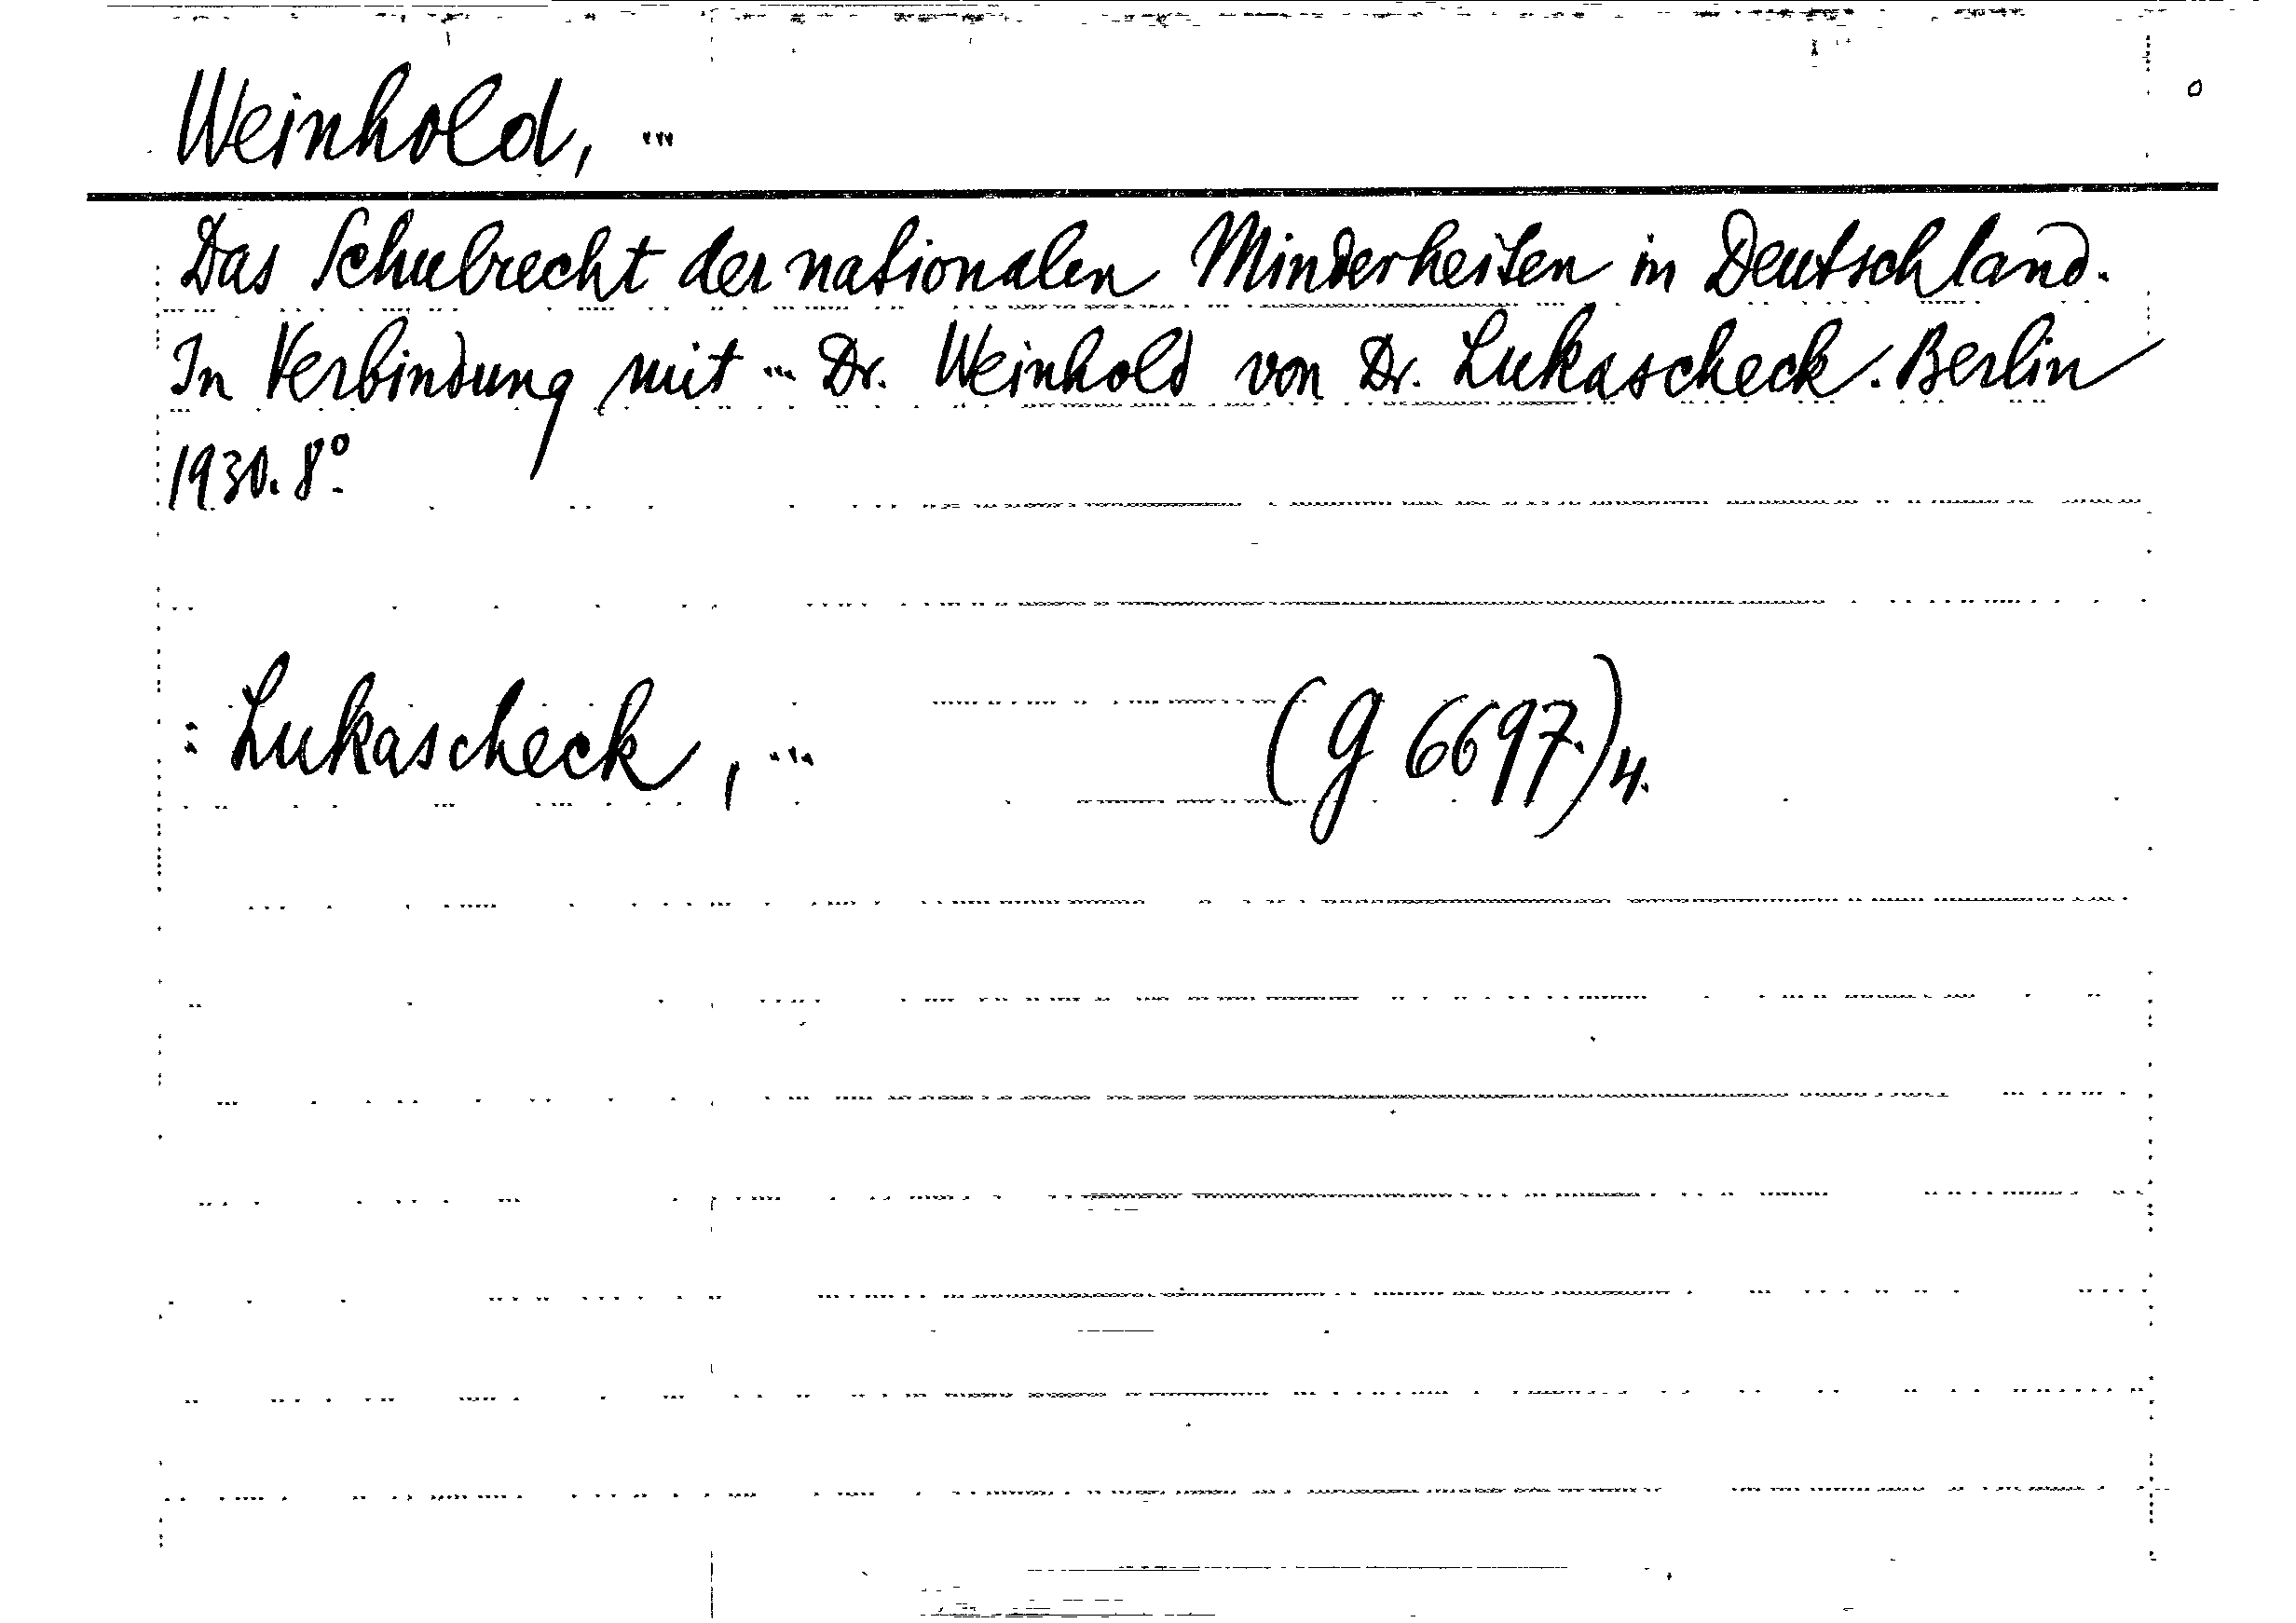 Weinhold, ...
Das Schulrecht der nationalen Minderheiten in Deutschland.
In Verbindung mit ... Dr. Weinhold von Dr. Lukascheck. Berlin
1930. 8°.
: Lukascheck, ... (G 6697.)4.